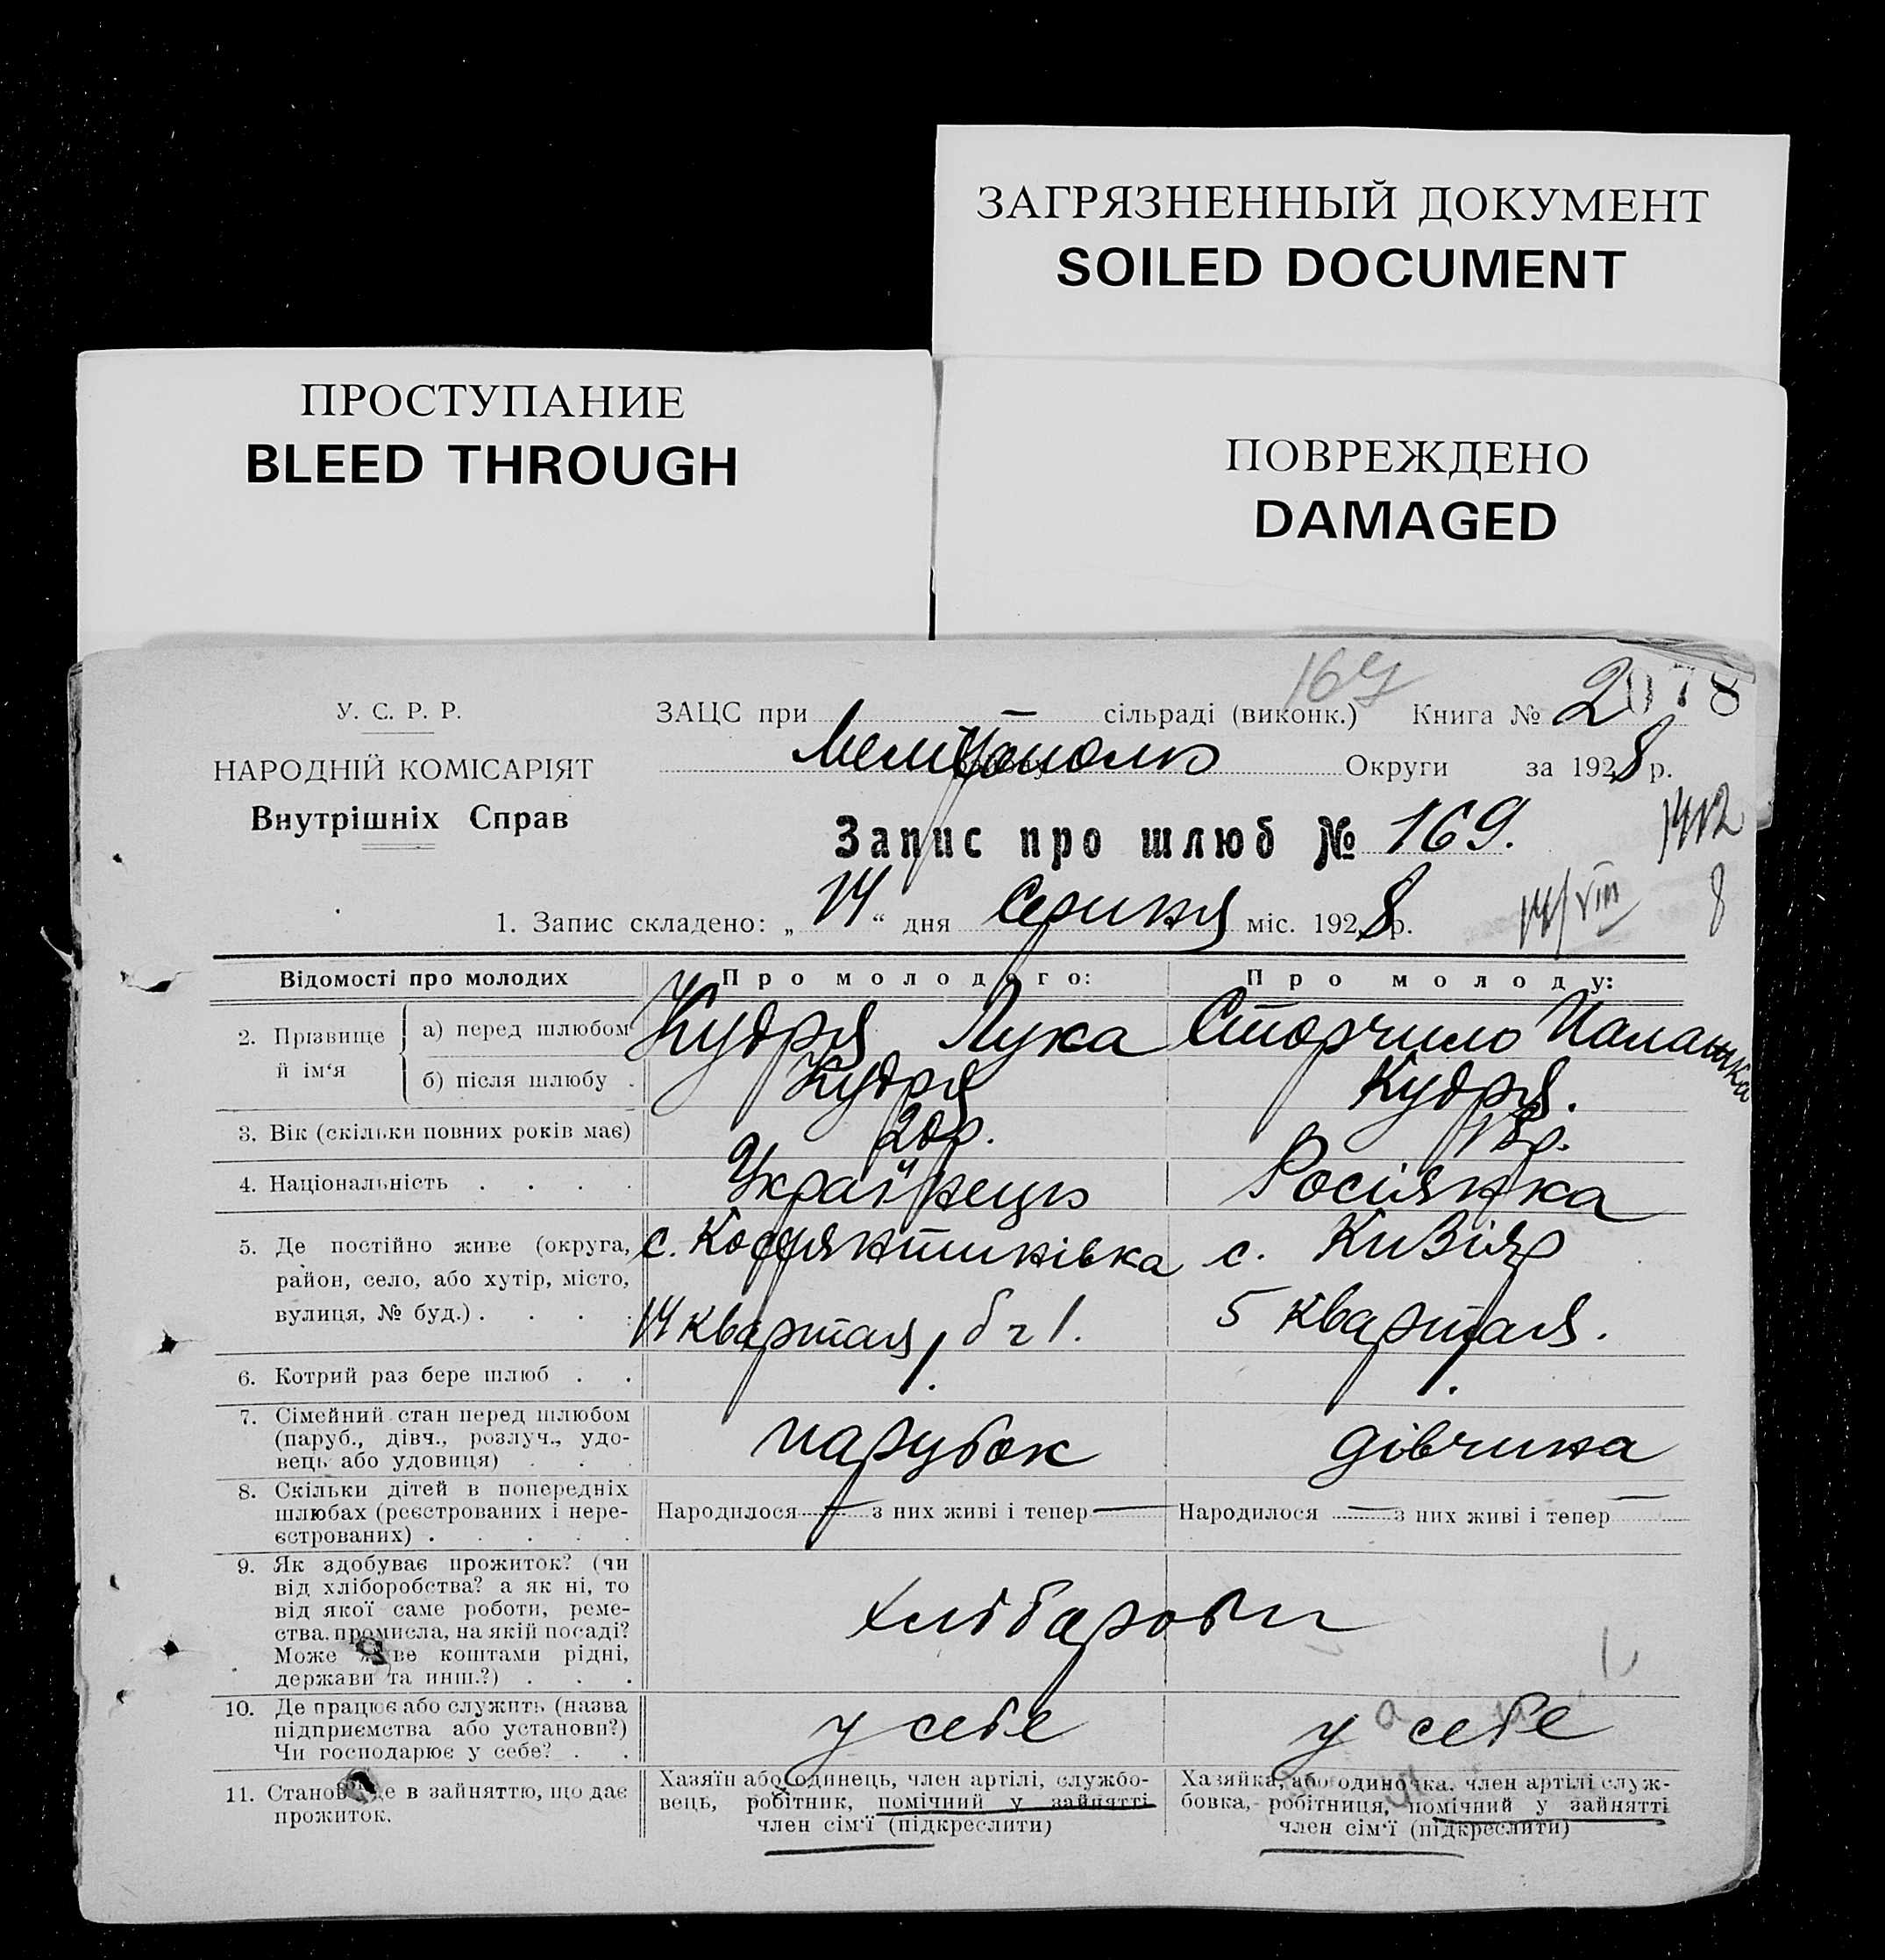 ЗАГРЯЗНЕННЫЙ ДОКУМЕНТ
SOILED DOCUMENT
ПРОСТУПАНИЕ
BLEED THROUGH
ПОВРЕЖДЕНО
DAMAGED
У. С. Р. Р.
НАРОДНІЙ КОМІСАРІЯТ
Внутрішніх Справ
ЗАЦС при — сільраді (виконк.) Книга № 2
Округи за 1928 р.
Запис про шлюб № 169.
1. Запис складено: „14“ дня Серпня міс. 1928 р.
14/VIII 8
Відомості про молодих
Про молодого:
Про молоду:
2. Прізвище й ім'я
а) перед шлюбом
Кудря Лука
Сторчило Палажка
б) після шлюбу .
Кудря
Кудря.
3. Вік (скільки повних років має)
20 р.
18 р.
4. Національність . . . .
Українець
Росіянка
5. Де постійно живе (округа,
район, село, або хутір, місто,
вулиця, № буд.) . . . .
с. Костянтинівка
14 квартал,
с. Кизіяр
5 квартал.
6. Котрий раз бере шлюб . .
1.
1.
7. Сімейний стан перед шлюбом
(паруб., дівч., розлуч., удо-
вець або удовиця) . . .
парубок
дівчина
8. Скільки дітей в попередніх
шлюбах (реєстрованих і нере-
єстрованих) . . . . .
Народилося — з них живі і тепер —
Народилося — з них живі і тепер —
9. Як здобуває прожиток? (чи
від хліборобства? а як ні, то
від якої саме роботи, реме-
ства, промисла, на якій посаді?
Може живе коштами рідні,
держави та инш.?) . . .
хлібароби
10. Де працює або служить (назва
підприємства або установи?)
Чи господарює у себе? . .
у себе
у себе
11. Становище в зайняттю, що дає
прожиток.
Хазяїн або одинець, член артілі, службо-
вець, робітник, помічний у зайнятті
член сім'ї (підкреслити)
Хазяйка, або одиночка, член артілі служ-
бовка, робітниця, помічний у зайнятті
член сім'ї (підкреслити)